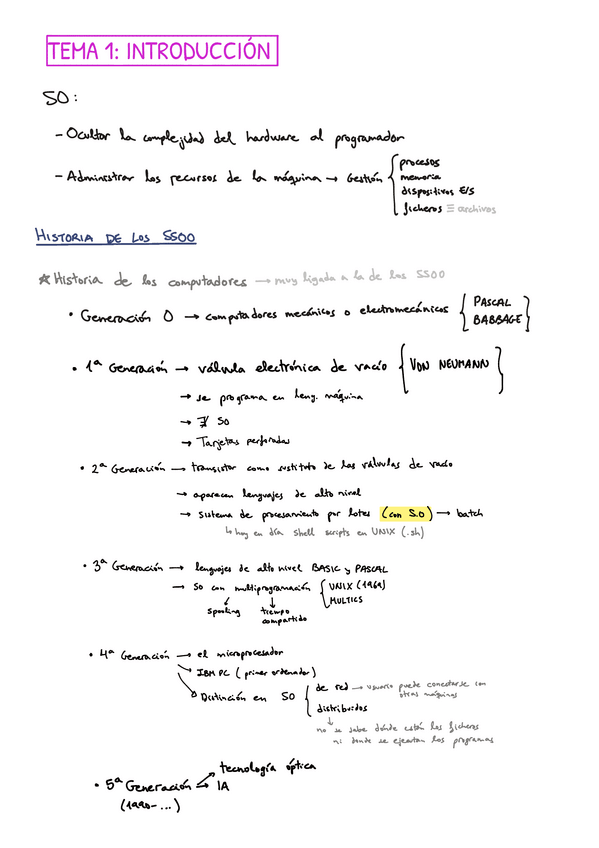 TEMA 1: INTRODUCCIÓN
SO:
- Ocultar la complejidad del hardware al programador
- Administrar los recursos de la máquina → Gestión { procesos
memoria
dispositivos E/S
ficheros ≡ archivos
HISTORIA DE LOS SSOO
☆ Historia de los computadores → muy ligada a la de los SSOO
• Generación 0 → computadores mecánicos o electromecánicos { PASCAL
BABBAGE }
• 1ª Generación → válvula electrónica de vacío { VON NEUMANN }
→ se programa en leng. máquina
→ ∄ SO
→ Tarjetas perforadas
• 2ª Generación → transistor como sustituto de las válvulas de vacío
→ aparecen lenguajes de alto nivel
→ sistema de procesamiento por lotes (con S.O) → batch
↳ hoy en día shell scripts en UNIX (.sh)
• 3ª Generación → lenguajes de alto nivel BASIC y PASCAL
→ SO con multiprogramación { UNIX (1969)
MULTICS
spooling tiempo compartido
• 4ª Generación → el microprocesador
→ IBM PC (primer ordenador)
→ Distinción en SO { de red → usuario puede conectarse con otras máquinas
distribuidos
↓
no se sabe dónde están los ficheros
ni donde se ejecutan los programas
• 5ª Generación → tecnología óptica
→ IA
(1990-...)